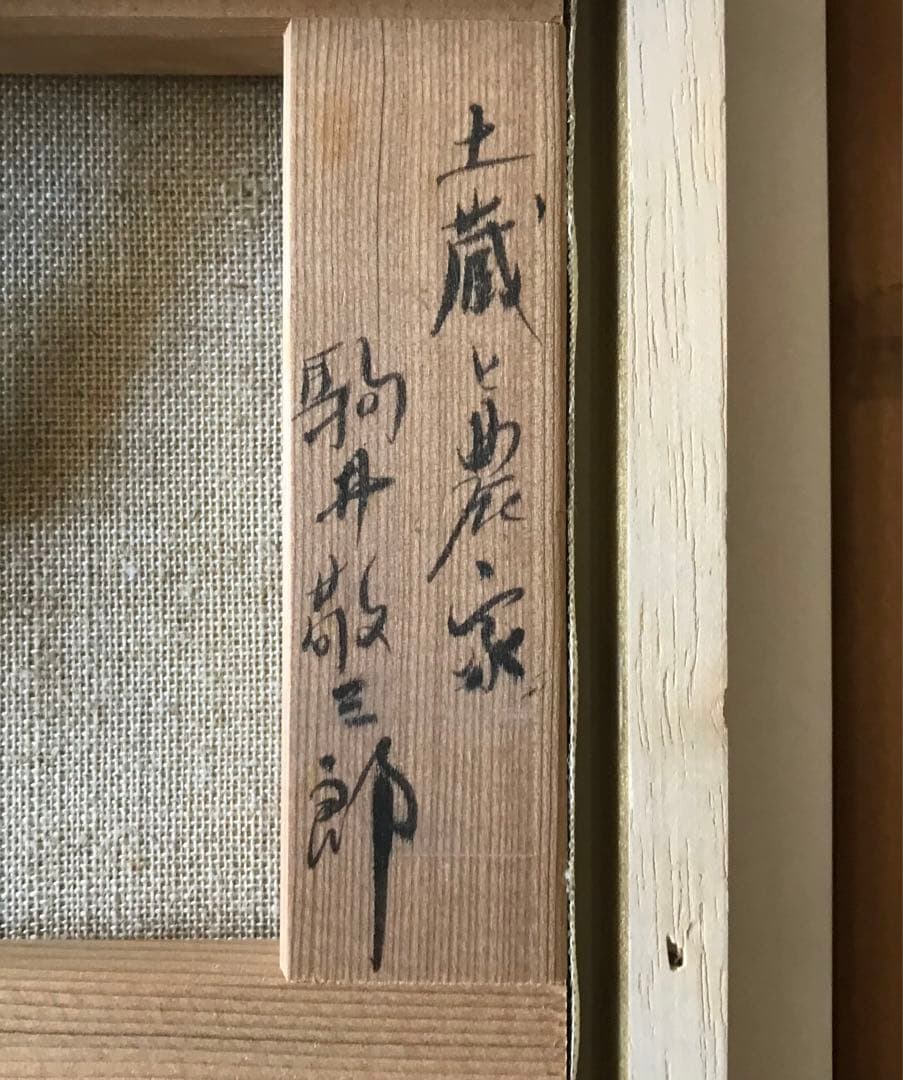 土蔵と農家
駒井敬三郎